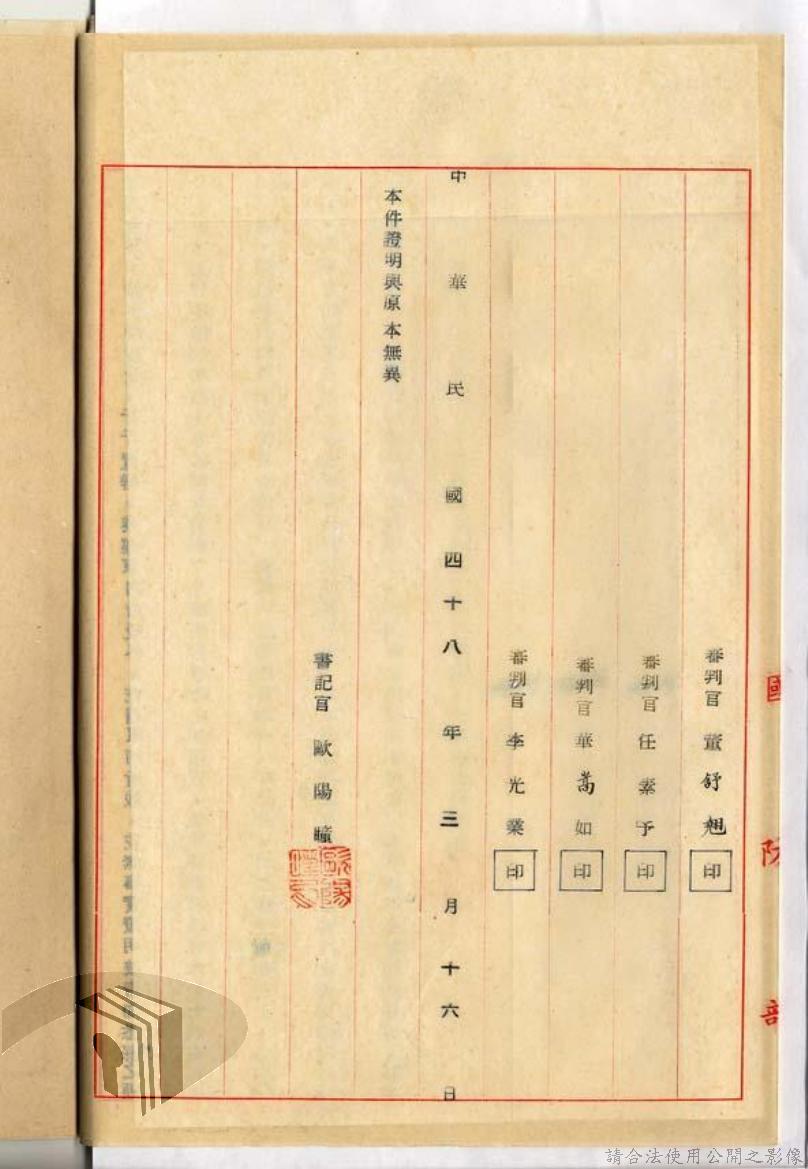 審判官董舒翹印
審判官任素予印
審判官華嵩如印
審判官李光業印
中華民國四十八年三月十六日
本件證明與原本無異
書記官歐陽疃
國防部
請合法使用公開之影像